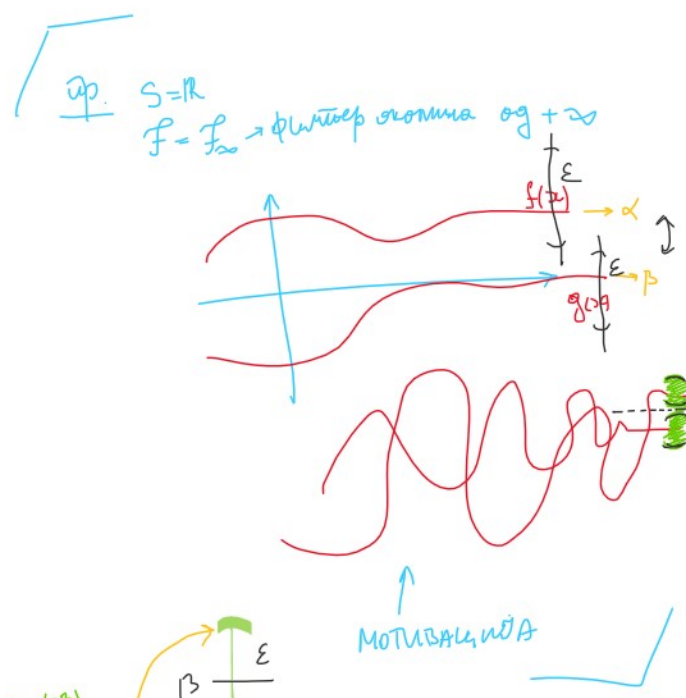 пр. S=ℝ
F = F∞ → филтер околина од +∞
ε
f(x)
→ α
ε
→ β
g(x)
МОТИВАЦИЈА
ε
β